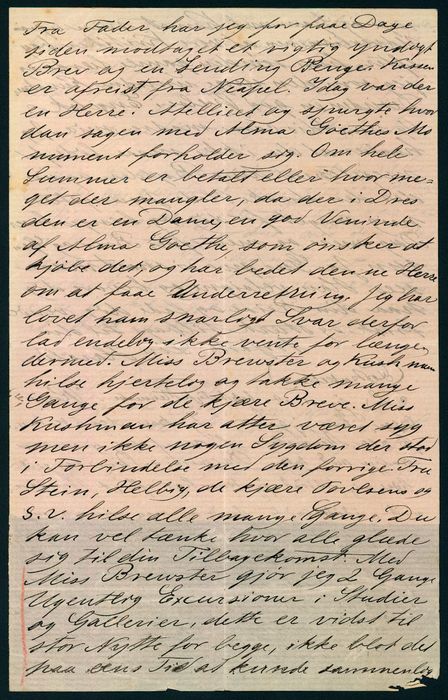 Fra Fader har jeg for faae Dage
siden modtaget et rigtig yndigt
Brev og en Sending Penge. Kassen
er afreist fra Neapel. Idag var der
en Herre i Atelieet og spurgte hvor
dan sagen med Alma Goethes Mo
nument forholder sig. Om hele
Summer er betalt eller hvor me=
get der mangler, da der i Dres
den er en Dame, en god Veninde
af Alma Goethe, som önsker at
kjöbe det, og har bedet denne Herre
om at faae Underretning. Jeg har
lovet ham snarligt Svar derfor
lad endelig ikke vente for længe
dermed. Miss Brewster og Kushman
hilse hjertelig og takke mange
Gange for de kjære Breve. Miss
Kushman har atter været syg
men ikke nogen Sygdom der stod
i Forbindelse med den forrige. Fru
Stein, Helbig, de kjære Ravlsens og
s. v. hilse alle mange Gange. Du
kan vel tænke hvor alle glæde
sig til din Tilbagekomst. Med
Miss Brewster gjör jeg 2 Gange
Ugentlig Excursioner i Studier
og Gallerier, dette er vidst til
stor Nytte for begge, ikke blot det
paa eens Tid at kunde sammenlig